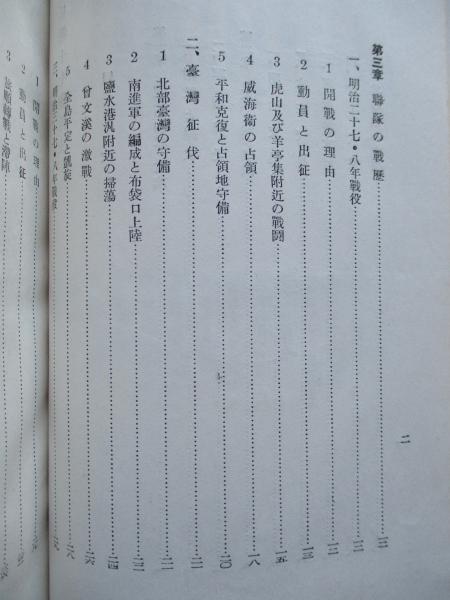 第三章 聯隊の戰歷
一、明治二十七・八年戰役……一二
1 開戰の理由……一二
2 動員と出征……一三
3 虎山及び羊亭集附近の戰鬪……一五
4 威海衞の占領……一八
5 平和克復と占領地守備……二〇
二、臺灣征伐……二一
1 北部臺灣の守備……二一
2 南進軍の編成と布袋口上陸……二二
3 鹽水港汎附近の掃蕩……二四
4 曾文溪の激戰……二六
5 全島平定と凱旋……二八
三、明治三十七・八年戰役……二九
1 開戰の理由
2 動員と出征
3 旅順
二